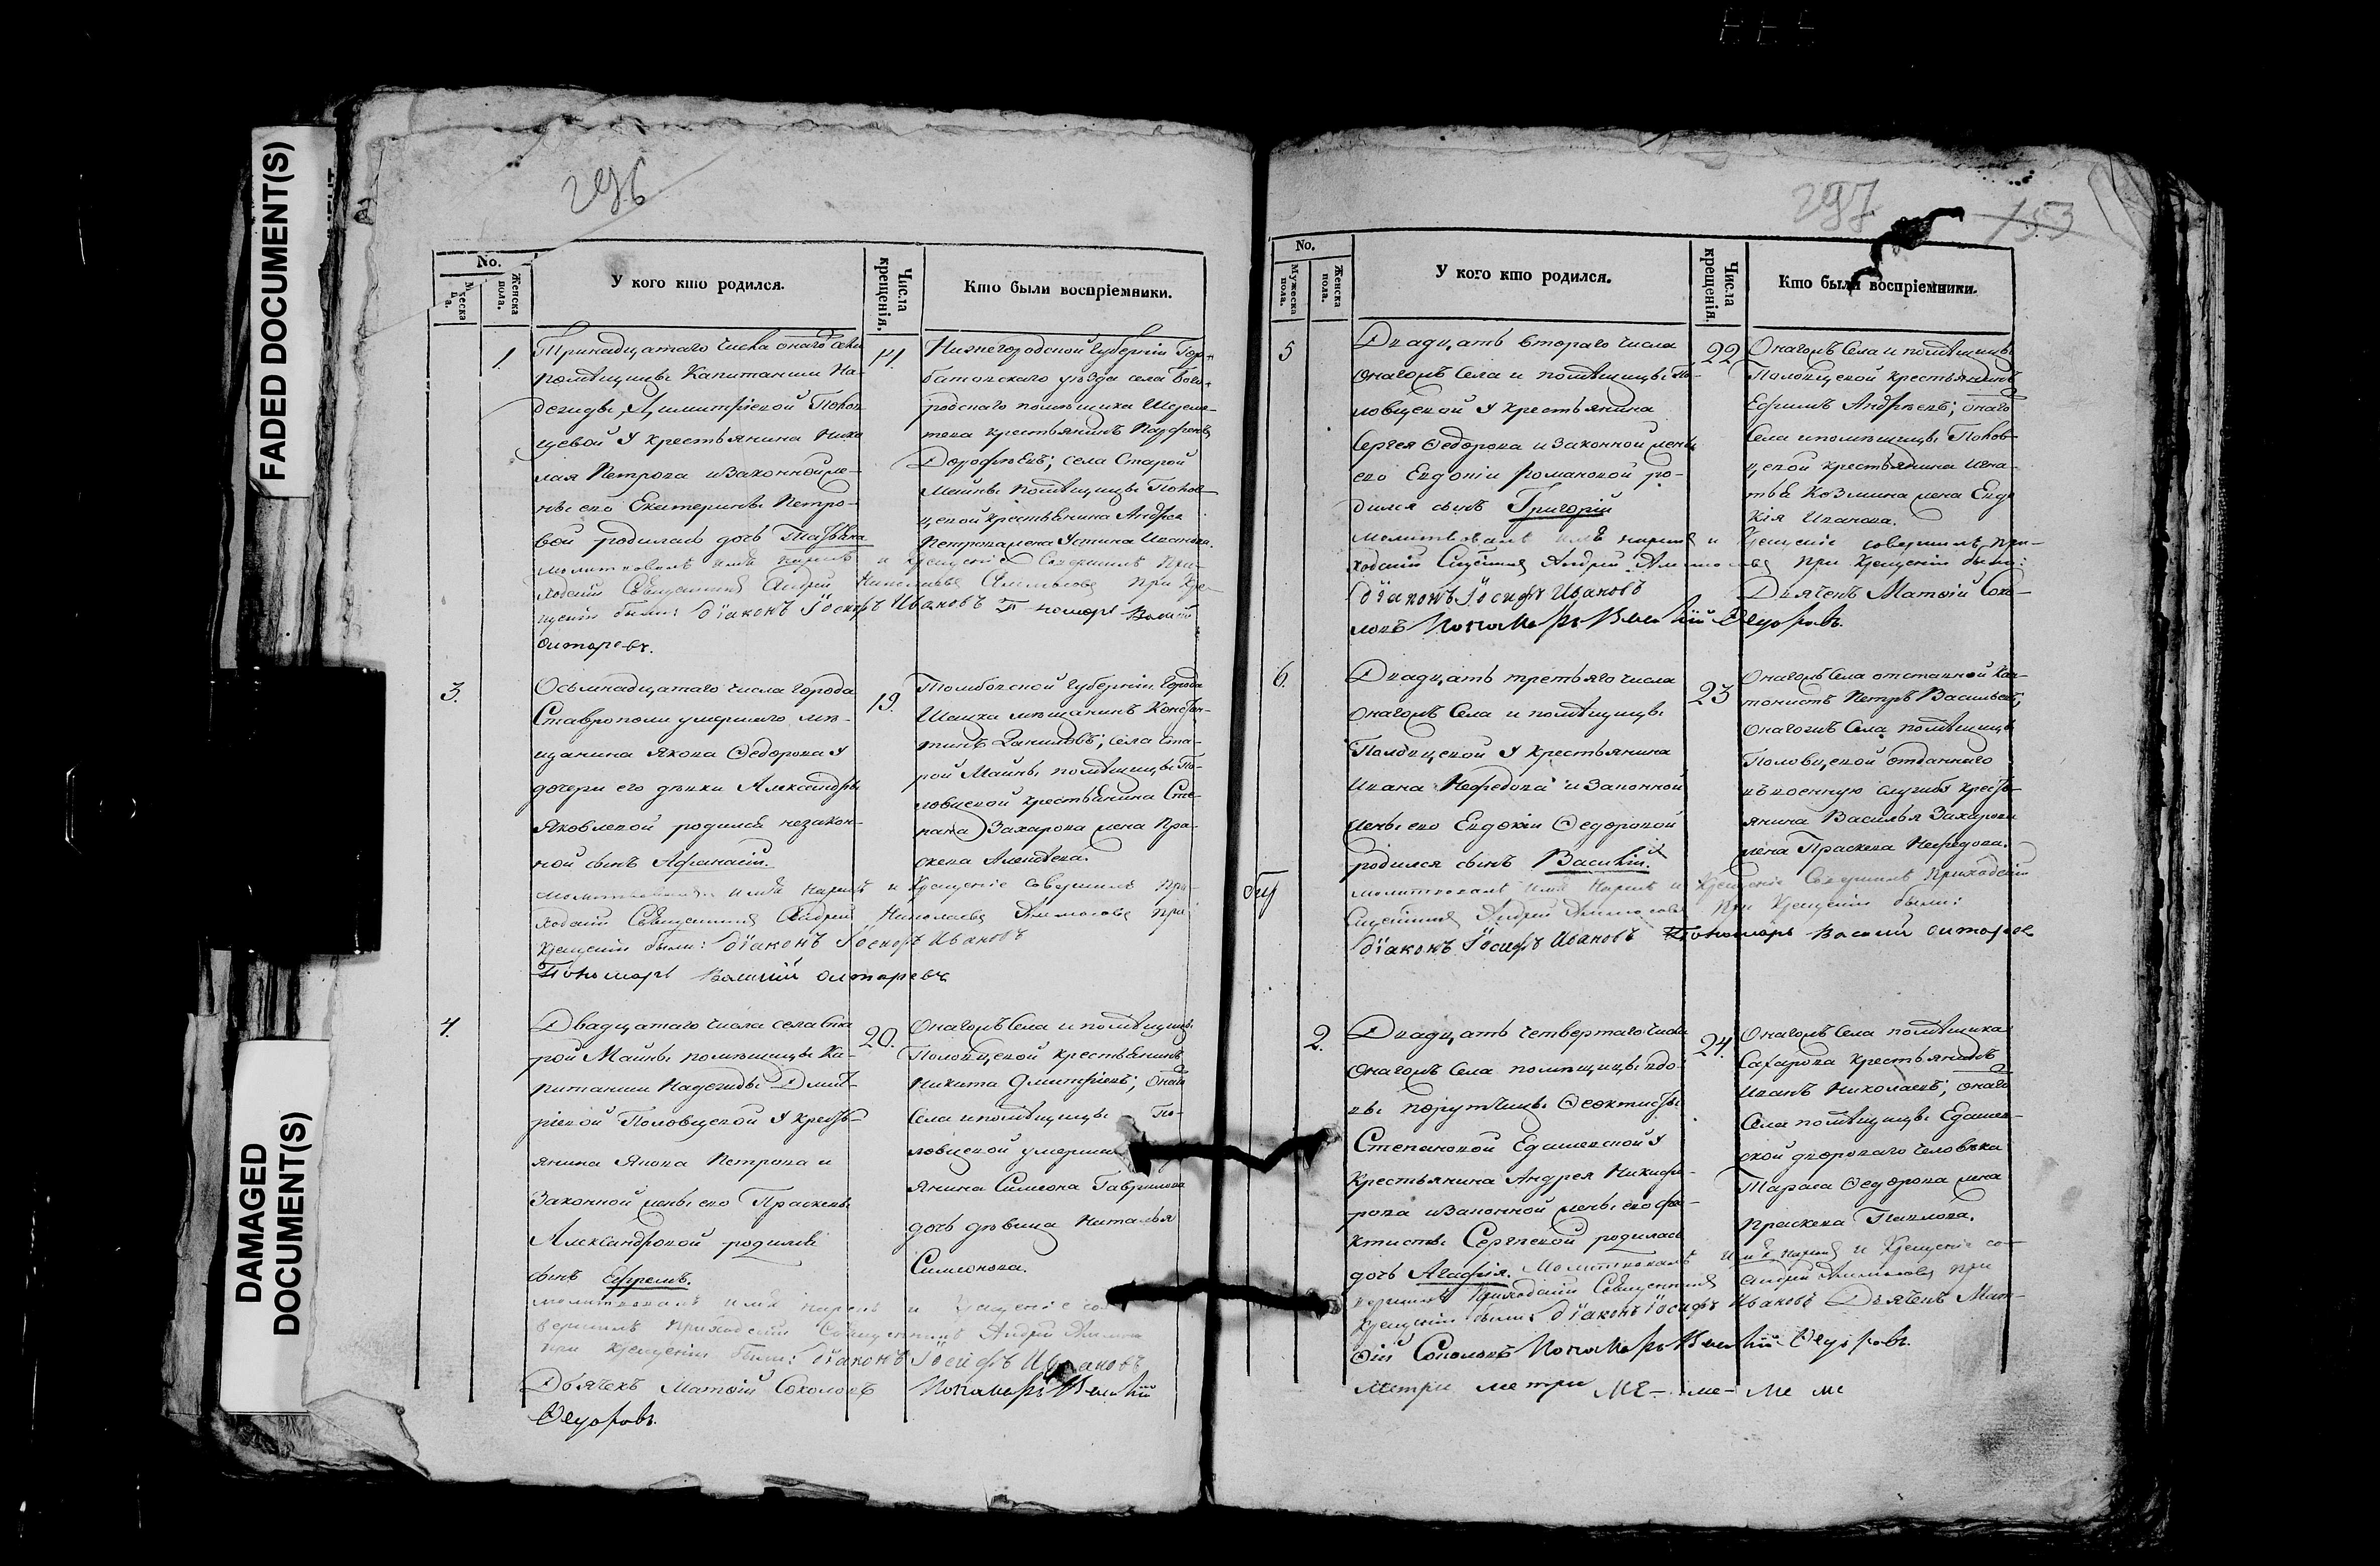 FADED DOCUMENT(S)
DAMAGED
DOCUMENT(S)
296
No.
Мужеска пола.
Женска пола.
У кого кто родился.
Числа крещенія.
Кто были воспріемники.
1.
Тринадцатаго числа онаго села
помѣщицы Капитанши На-
дежды Димитріевой Полов
цевой у крестьянина Нико
лая Петрова и законной же-
ны его Екатерины Петро-
вой родилась дочь Татьяна
молитвовалъ имя нарекъ и крещеніе совершилъ при-
ходскій Священникъ Андрей Николаевъ при кре-
щеніи были: діаконъ Іосифъ Ивановъ Пономарь Василій
14.
Нижегородской Губерніи Гор-
батовскаго уѣзда села Бого-
родскаго помѣщика Шереме-
тева крестьянинъ Парфенъ
Дорофѣевъ; села Старой
Майны помѣщицы Полов-
цевой крестьянина Андрея
Петрова жена Устина Иванова.
3.
Осьмнадцатаго числа города
Ставрополи умершаго мѣ-
щанина Якова Федорова у
дочери его дѣвки Александры
Яковлевой родился незакон-
ной сынъ Афанасій.
молитвовалъ имя нарекъ и крещеніе совершилъ при-
ходскій Священникъ Андрей Николаевъ при
крещеніи были: діаконъ Іосифъ Ивановъ
Пономарь Василій
19.
Тамбовской Губерніи города
Шацка мѣщанинъ Констан-
тинъ Даниловъ; села Ста-
рой Майны помѣщицы По-
ловцевой крестьянина Сте-
пана Захарова жена Пра-
скева Алексѣева.
4.
Двадцатаго числа села Ста
рой Майны помѣщицы Ка-
питанши Надежды Дмит-
ріевой Половцевой у кресть-
янина Якова Петрова и
законной жены его Праскевы
Александровой родился
сынъ Ефремъ.
молитвовалъ имя нарекъ и крещеніе со-
вершилъ приходскій Священникъ Андрей
при крещеніи были: діаконъ Іосифъ Ивановъ
Дьячекъ Матѳій Соколовъ Пономарь Василій
Ѳедоровъ.
20.
Онагожъ села и помѣщицы
Половцевой крестьянинъ
Никита Дмитріевъ; онаго
села и помѣщицы По-
ловцевой
янина Симеона Гаврилова
дочь дѣвица Наталья
Симеонова.
297
153
No.
Мужеска пола.
Женска пола.
У кого кто родился.
Числа крещенія.
Кто были воспріемники.
5
Двадцать втораго числа
онагожъ села и помѣщицы По-
ловцевой у крестьянина
Сергея Ѳедорова и законной жены
его Евдокіи Романовой ро-
дился сынъ Григорій
молитвовалъ имя нарекъ и крещеніе совершилъ при-
ходскій Священникъ Андрей при крещеніи были:
діаконъ Іосифъ Ивановъ Дьячекъ Матѳій Соко-
ловъ Пономарь Василій Ѳедоровъ.
22
Онагожъ села и помѣщицы
Половцевой крестьянинъ
Ефимъ Андрѣевъ; онаго
села и помѣщицы Полов-
цевой крестьянина Игна-
тья Козмина жена Евдо
кія Иванова.
6.
Двадцать третьяго числа
онагожъ села и помѣщицы
Половцевой у крестьянина
Ивана Нефедова и законной
жены его Евдокіи Ѳедоровой
родился сынъ Василій.
молитвовалъ имя нарекъ и крещеніе совершилъ приходскій
Священникъ Андрей при крещеніи были:
діаконъ Іосифъ Ивановъ Пономарь Василій
23
Онагожъ села отставной Кан-
тонистъ Петръ Васильевъ;
онагожъ села помѣщицы
Половцевой отданнаго
въ военную службу кресть-
янина Василья Захарова
жена Праскева Нефедова.
2.
Двадцать четвертаго числа
онагожъ села помѣщицы вдо-
вы порутчицы Ѳеоктисты
Степановой у
крестьянина Андрея Никифо-
рова и законной жены его Фео-
ктисты Сергеевой родилась
дочь Агафія. молитвовалъ имя нарекъ и крещеніе со-
вершилъ приходскій Священникъ Андрей при
крещеніи были: діаконъ Іосифъ Ивановъ Дьячекъ Мат-
ѳій Соколовъ Пономарь Василій Ѳедоровъ.
24.
Онагожъ села помѣщика
Сахарова крестьянинъ
Иванъ Николаевъ; онаго
села помѣщицы
ской двороваго человѣка
Тараса Ѳедорова жена
Праскева Павлова.
метри метри ме- ме- ме ме